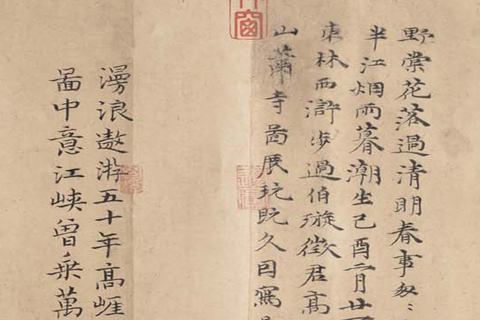 野棠花落過清明春事匆〻
半江烟雨暮潮生己酉二月廿
東林西滸步過伯璇徵君高
山蕭寺啚展玩既久因寫
漫浪遨游五十年高崖
啚中意江峽曾乘萬